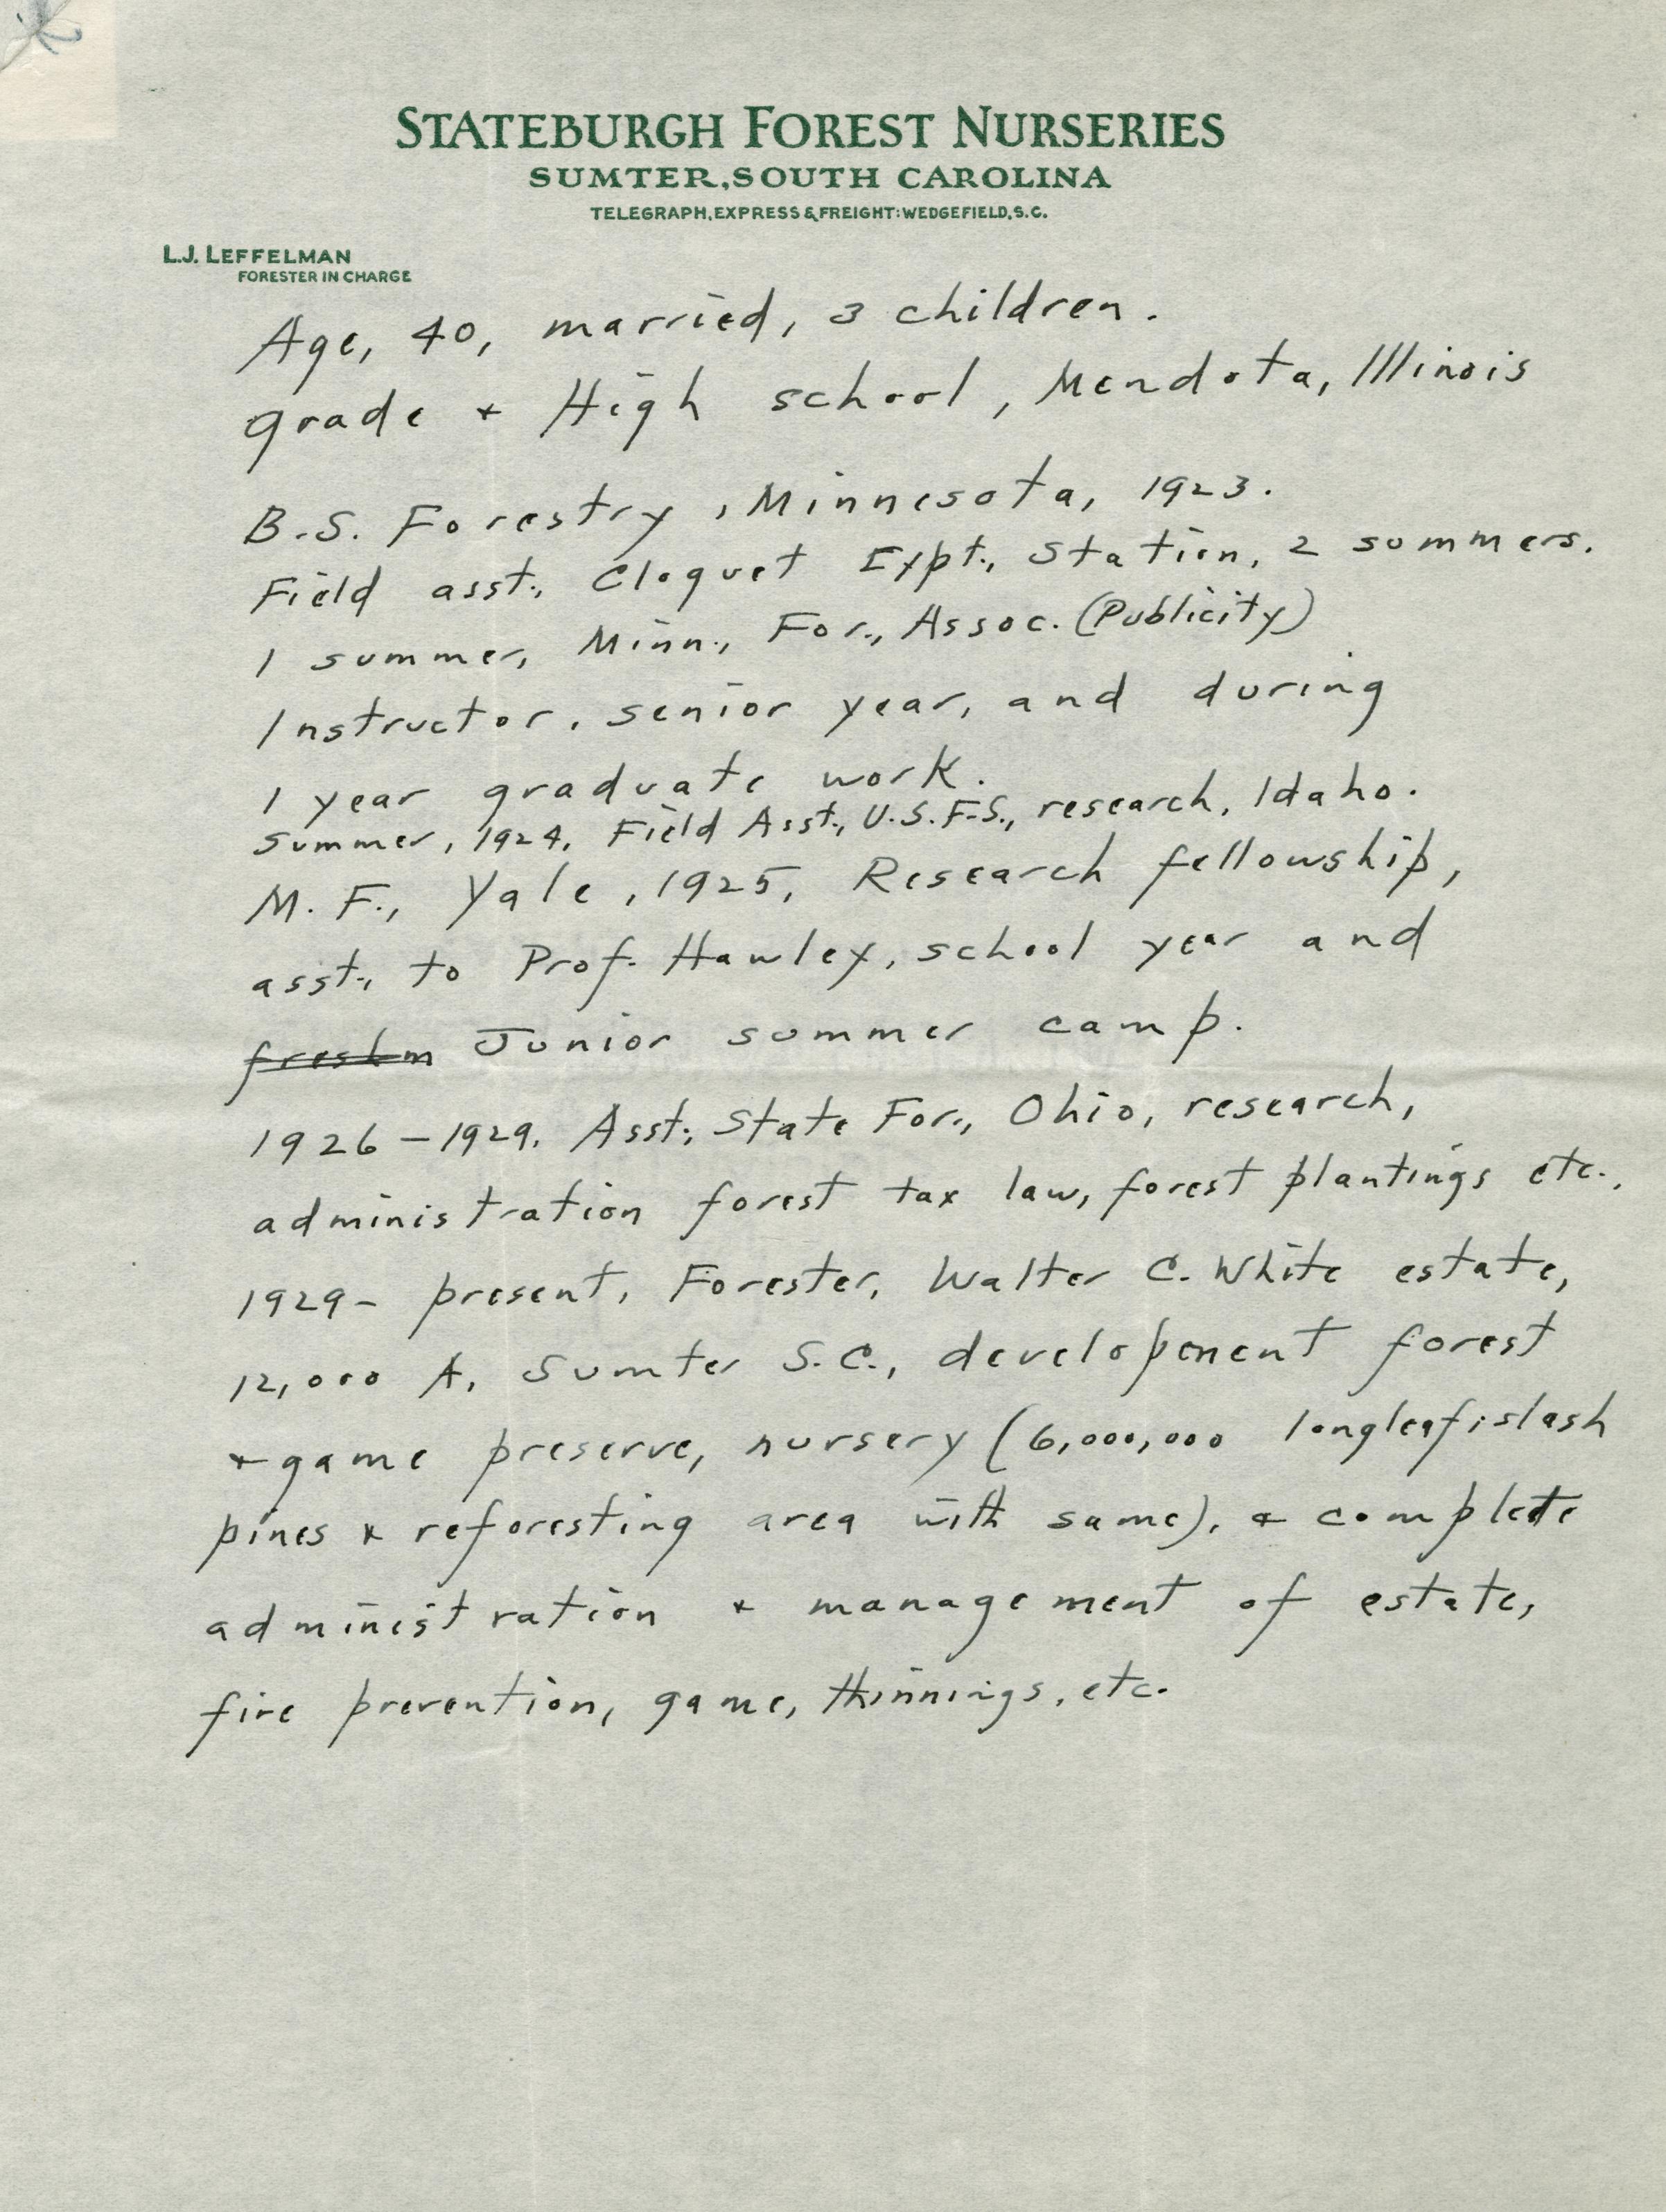 STATEBURGH FOREST NURSERIES
SUMTER, SOUTH CAROLINA
TELEGRAPH, EXPRESS & FREIGHT: WEDGEFIELD, S.C.
L.J. LEFFELMAN
FORESTER IN CHARGE
Age, 40, married, 3 children.
grade + High school, Mendota, Illinois
B.S. Forestry, Minnesota, 1923.
Field asst., Cloquet Expt., Station, 2 summers.
1 summer, Minn., For., Assoc. (Publicity)
Instructor, senior year, and during
1 year graduate work.
Summer, 1924, Field Asst., U.S.F.S., research, Idaho.
M.F., Yale, 1925, Research fellowship,
asst., to Prof. Hawley, school year and
freshm Junior summer camp.
1926-1929. Asst., State For., Ohio, research,
administration forest tax law, forest plantings etc.,
1929- present, Forester, Walter C. White estate,
12,000 A, Sumter S.C., developenent forest
+ game preserve, nursery (6,000,000 longleaf & slash
pines & reforesting area with same), & complete
administration + management of estate,
fire prevention, game, thinnings, etc.